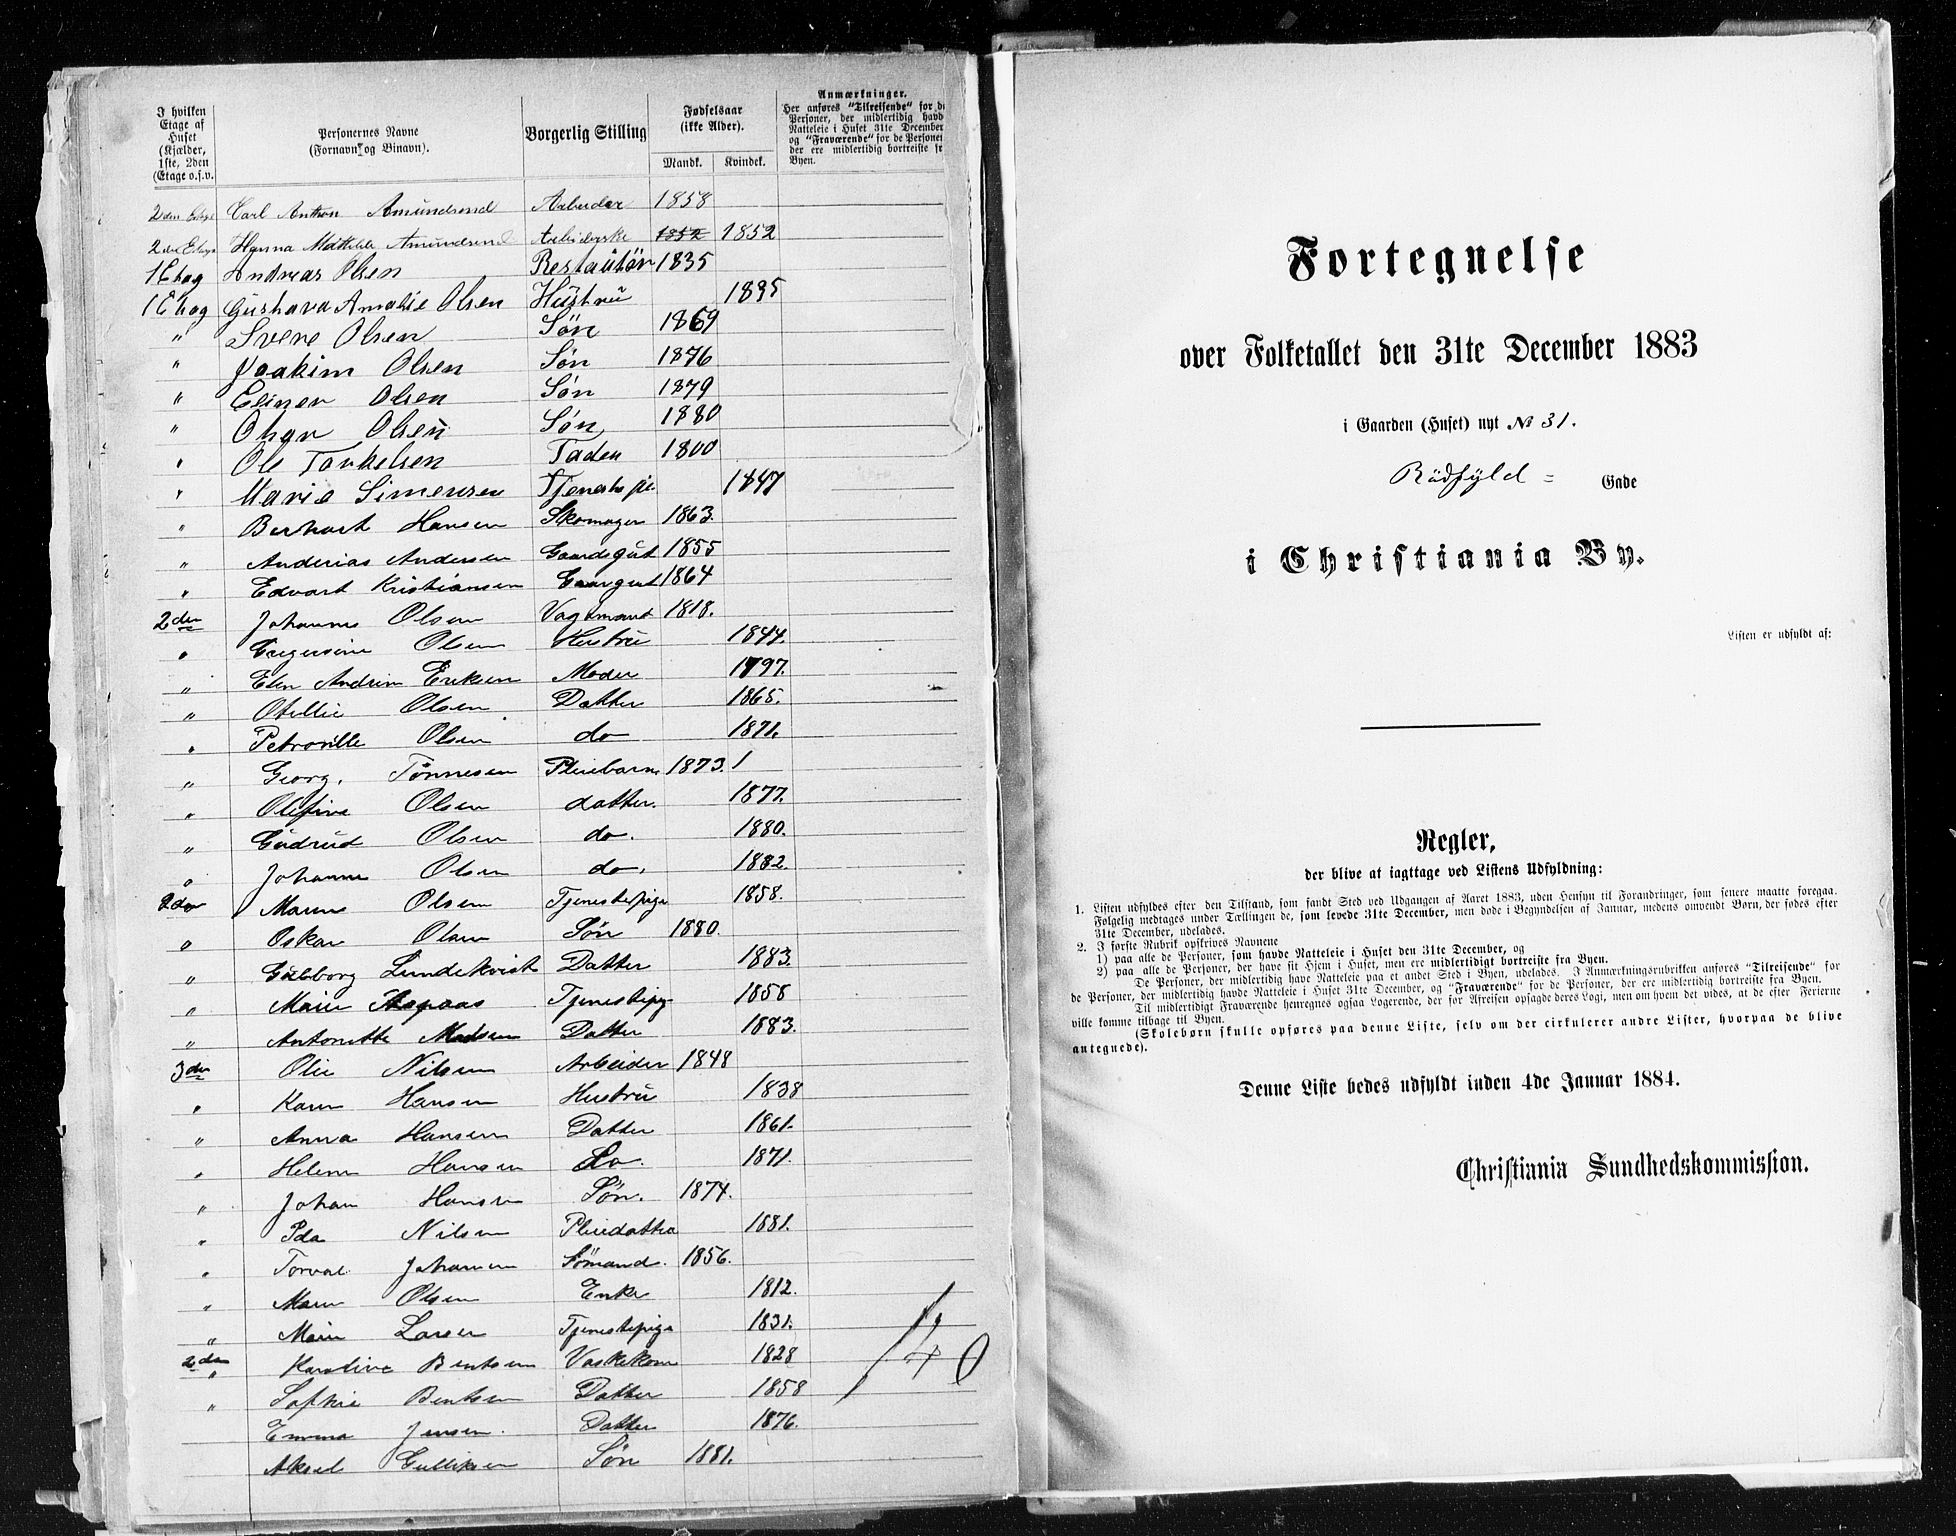 I hvilken Etage af Huset (Kjælder, 1ste, 2den Etage o.s.v.
Personernes Navne (Fornavn og Binavn).
Borgerlig Stilling
Fødselsaar (ikke Alder).
Mandk. Kvindek.
Anmærkninger.
Her anføres "Tilreisende" for de
Personer, der midlertidig havde
Natteleie i Huset 31te December
og "Fraværende" for de Personer
der ere midlertidig bortreiste fr
Byen.
2den Etage Carl Anthon Amundsend Arbeider 1858
2den Etage Hanna Mathilde Amundsend Arbeiderske 1852 1852
1 Etag Andreas Olsen Restautör 1835
1 Etag Gustava Amalie Olsen Hüstrü 1835
" Svere Olsen Sön 1869
" Joakim Olsen Søn 1876
" Elinar Olsen Søn 1879
" Olsen Søn 1880
" Ole Torkelsen Fader 1800
" Marie Simensen 1847
" Bernart Hansen Skomager 1863.
" Anderias Andersen Gaardsgüt 1855
" Edvart Kristiansen 1864
2den Johannes Olsen Vognmand 1818.
" Olsen Hustrü 1844.
" Elen Andrine Eriksen Moder 1797.
" Otellie Olsen Datter 1865.
" Petronille Olsen do 1871.
" Georg. Tönnesen Pleiebarn 1873. 1
" Olefine Olsen datter. 1877.
" Gudrud Olsen do. 1880.
" Johanne Olsen do. 1882.
2den Maren Olsen Tjenestepige 1858.
" Oskar Olsen Søn 1880.
" Gulborg Lundekvist Datter 1883.
" Marie Tjenestepig 1858
" Antonette Madsen Datter 1883.
3den Olie Nilsen Arbeider 1848
" Karen Hansen Hustrü 1838
" Anna Hansen Datter 1861.
" Helene Hansen Do. 1871.
" Johan Hansen Søn. 1874.
" Ida Nilsen Pleiedatter 1881.
" Torval Johansen Sömand. 1856.
" Maren Olsen Enke 1812.
" Marie Larsen Tjenestepige 1831.
2den " Karoline Bentsen Vaskekone 1828
" Sofhie Bentsen Datter 1858
Emma Jensen. Datter 1876.
Aksel Gulliksen Søn 1881.
40
Fortegnelse
over Folketallet den 31te December 1883
i Gaarden (Huset) nyt № 31.
Rödfyld = Gade
i Christiania By.
Listen er udfyldt af:
Regler,
der blive at iagttage ved Listens Udfyldning:
1. Listen udfyldes efter den Tilstand, som fandt Sted ved Udgangen af Aaret 1883, uden Hensyn til Forandringer, som senere maatte foregaa.
Følgelig medtages under Tællingen de, som levede 31te December, men døde i Begyndelsen af Januar, medens omvendt Børn, der fødes efter
31te December, udelades.
2. I første Rubrik opskrives Navnene
1) paa alle de Personer, som havde Natteleie i Huset den 31te December, og
2) paa alle de Personer, der have sit Hjem i Huset, men ere midlertidigt bortreiste fra Byen.
De Personer, der midlertidig have Natteleie paa et andet Sted i Byen, udelades. I Anmærkningsrubrikken anføres "Tilreisende" for
de Personer, der midlertidig havde Natteleie i Huset 31te December, og "Fraværende" for de Personer, der ere midlertidig bortreiste fra Byen.
Til midlertidigt Fraværende henregnes ogsaa Logerende, der før Afreisen opsagde deres Logi, men om hvem det vides, at de efter Ferierne
ville komme tilbage til Byen.
(Skolebørn skulle opføres paa denne Liste, selv om der cirkulerer andre Lister, hvorpaa de blive
antegnede).
Denne Liste bedes udfyldt inden 4de Januar 1884.
Christiania Sundhedskommission.